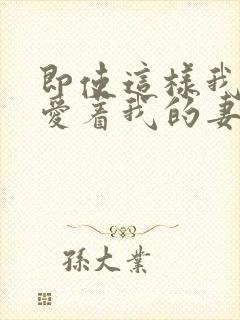 即使這樣我
愛着我的妻
孫大業